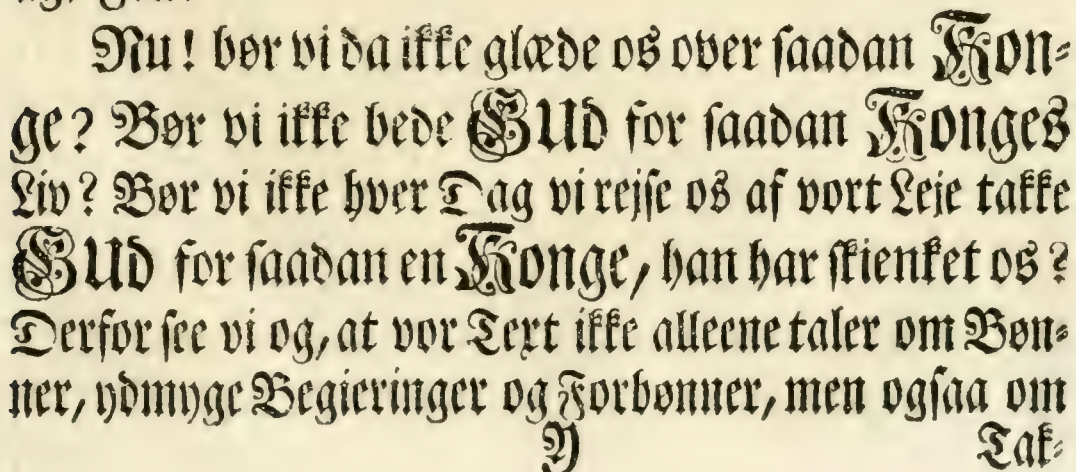 Nu! bør vi da ikke glæde os over saadan Kon-
ge? Bør vi ikke bede GUD for saadan Konges
Liv? Bør vi ikke hver Dag vi rejse os af vort Leje takke
GUD for saadan en Konge, han har skienket os?
Derfor see vi og, at vor Text ikke alleene taler om Bøn-
ner, ydmyge Begieringer og Forbønner, men ogsaa om
Y Tak-